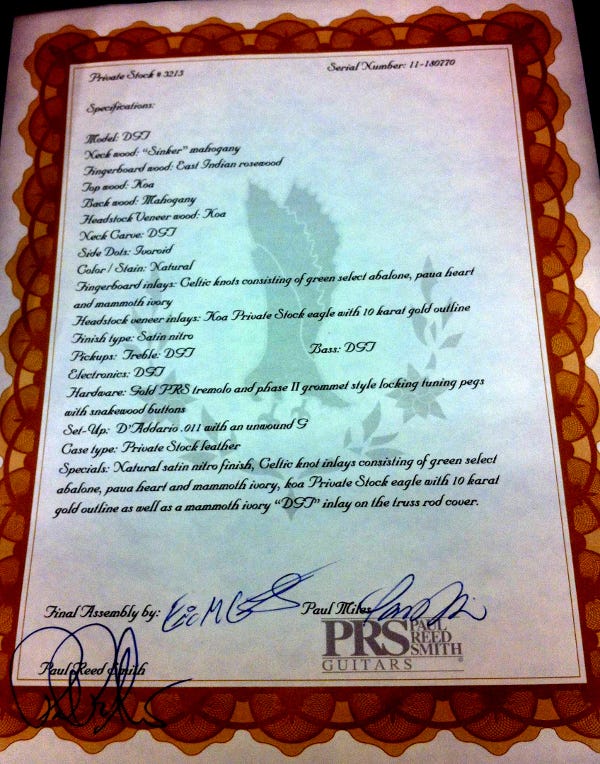 Private Stock # 3213
Serial Number: 11-180770
Specifications:
Model: DGT
Neck wood: "Sinker" mahogany
Fingerboard wood: East Indian rosewood
Top wood: Koa
Back wood: Mahogany
Headstock Veneer wood: Koa
Neck Carve: DGT
Side Dots: Ivoroid
Color / Stain: Natural
Fingerboard inlays: Celtic knots consisting of green select abalone, paua heart
and mammoth ivory
Headstock veneer inlays: Koa Private Stock eagle with 10 karat gold outline
Finish type: Satin nitro
Pickups: Treble: DGT Bass: DGT
Electronics: DGT
Hardware: Gold PRS tremolo and phase II grommet style locking tuning pegs
with snakewood buttons
Set-Up: D'Addario .011 with an unwound G
Case type: Private Stock leather
Specials: Natural satin nitro finish, Celtic knot inlays consisting of green select
abalone, paua heart and mammoth ivory, koa Private Stock eagle with 10 karat
gold outline as well as a mammoth ivory "DGT" inlay on the truss rod cover.
Final Assembly by: Paul Miles
PRS PAUL
REED
SMITH
GUITARS
Paul Reed Smith